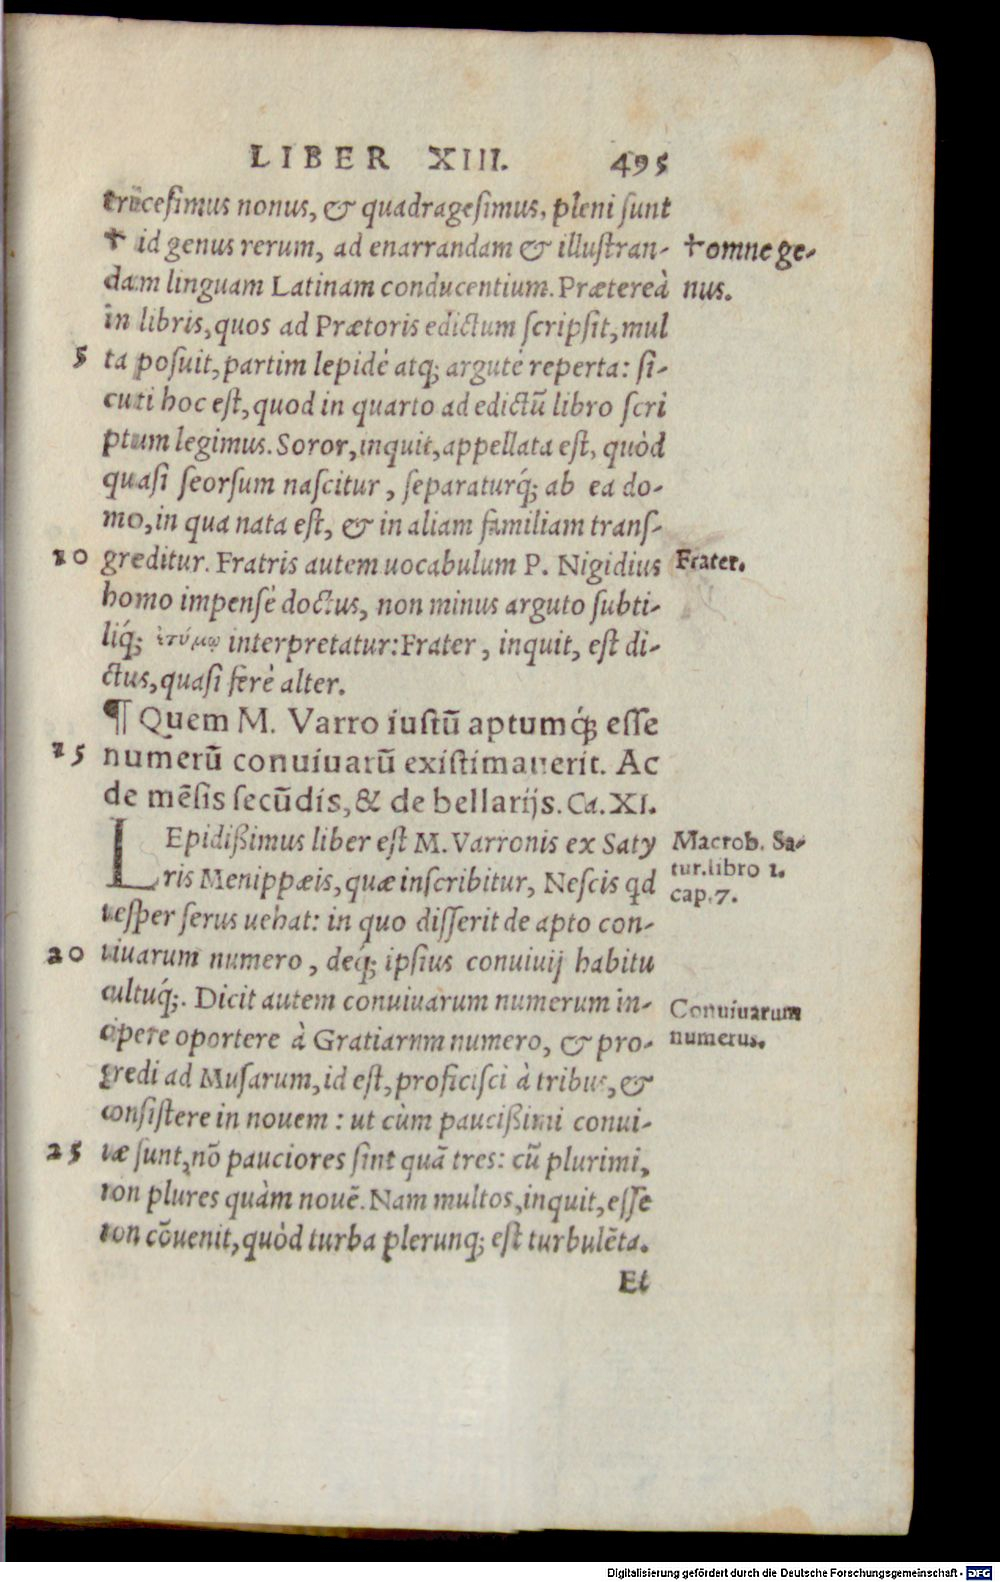 LIBER XIII. 495
tricesimus nonus, & quadragesimus, pleni sunt
✝ id genus rerum, ad enarrandam & illustran-
✝ omne ge-
dam linguam Latinam conducentium. Prætereà
nus.
in libris, quos ad Prætoris edictum scripsit, mul
5 ta posuit, partim lepidè atq; argutè reperta: si-
cuti hoc est, quod in quarto ad edictū libro scri
ptum legimus. Soror, inquit, appellata est, quòd
quasi seorsum nascitur, separaturq́; ab ea do-
mo, in qua nata est, & in aliam familiam trans-
10 greditur. Fratris autem uocabulum P. Nigidius
Frater.
homo impensè doctus, non minus arguto subti-
liq́; ἐτύμῳ interpretatur: Frater, inquit, est di-
ctus, quasi ferè alter.
¶ Quem M. Varro iustū aptumq́; esse
15 numerū conuiuarū existimauerit. Ac
de mēsis secūdis, & de bellarijs. Ca. XI.
LEpidißimus liber est M. Varronis ex Saty
Macrob. Sa-
ris Menippæis, quæ inscribitur, Nescis qd
tur. libro 1.
cap. 7.
uesper serus uehat: in quo disserit de apto con-
20 uiuarum numero, deq́; ipsius conuiuij habitu
cultuq́;. Dicit autem conuiuarum numerum in-
Conuiuarum
cipere oportere à Gratiarum numero, & pro-
numerus.
gredi ad Musarum, id est, proficisci à tribus, &
consistere in nouem: ut cùm paucißimi conui-
25 uæ sunt, nō pauciores sint quā tres: cū plurimi,
non plures quàm nouē. Nam multos, inquit, esse
non cōuenit, quòd turba plerunq; est turbulēta.
Et
Digitalisierung gefördert durch die Deutsche Forschungsgemeinschaft - DFG